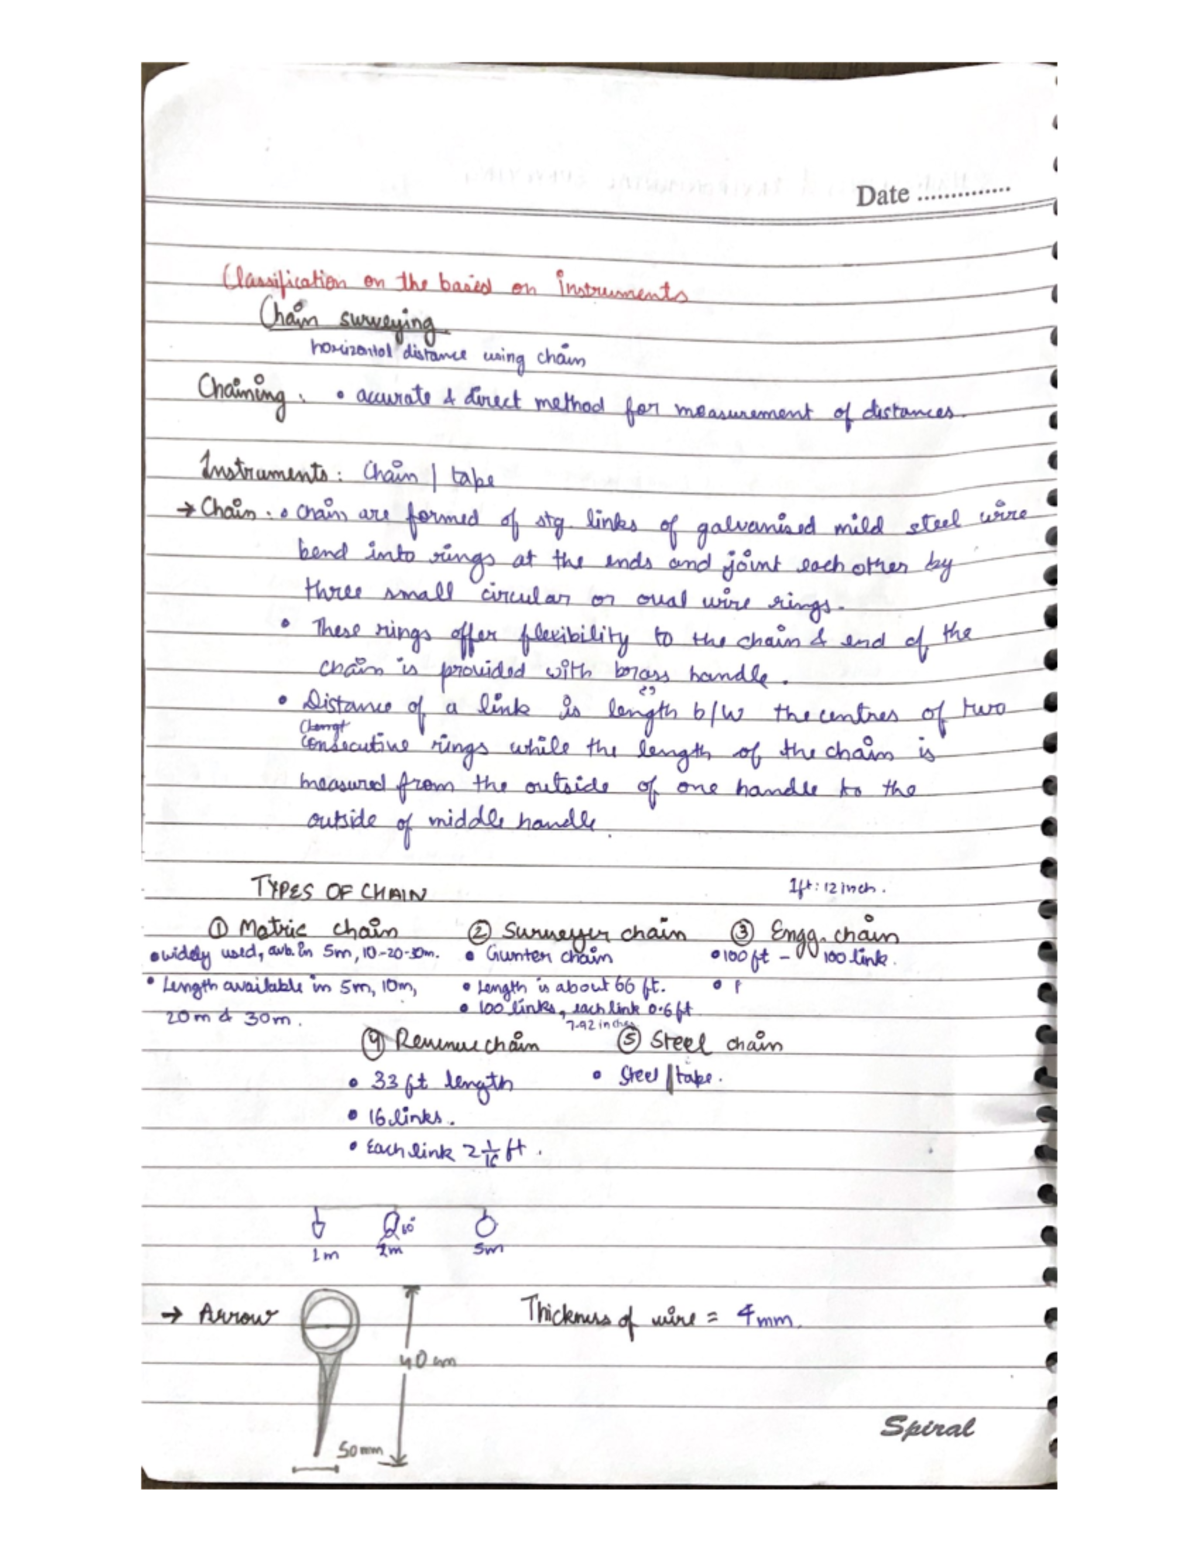 Date ..............
Classification on the based on instruments
Chain surveying
horizontal distance using chain
Chaining : • accurate & direct method for measurement of distances.
Instruments : Chain | tape
→ Chain : • Chain are formed of stg. links of galvanised mild steel wire
bend into rings at the ends and joint each other by
three small circular or oval wire rings.
• These rings offer flexibility to the chain & end of the
chain is provided with brass handle.
• Distance of a link is length b/w the centres of two
consecutive rings while the length of the chain is
measured from the outside of one handle to the
outside of middle handle.
TYPES OF CHAIN 1ft : 12 inch.
① Metric chain ② Surveyer chain ③ Engg. chain
• widely used, avb. in 5m, 10-20-30m. • Gunter chain • 100 ft – 100 link.
• Length available in 5m, 10m, • Length is about 66 ft. •
20m & 30m. • 100 links, each link 0.6ft
7.92 inches
④ Revenue chain ⑤ Steel chain
• 33 ft length • Steel | tape.
• 16 links.
• Each link 2 1/16 ft.
10
1m 2m 5m
→ Arrow Thickness of wire = 4mm.
40 cm
50mm
Spiral